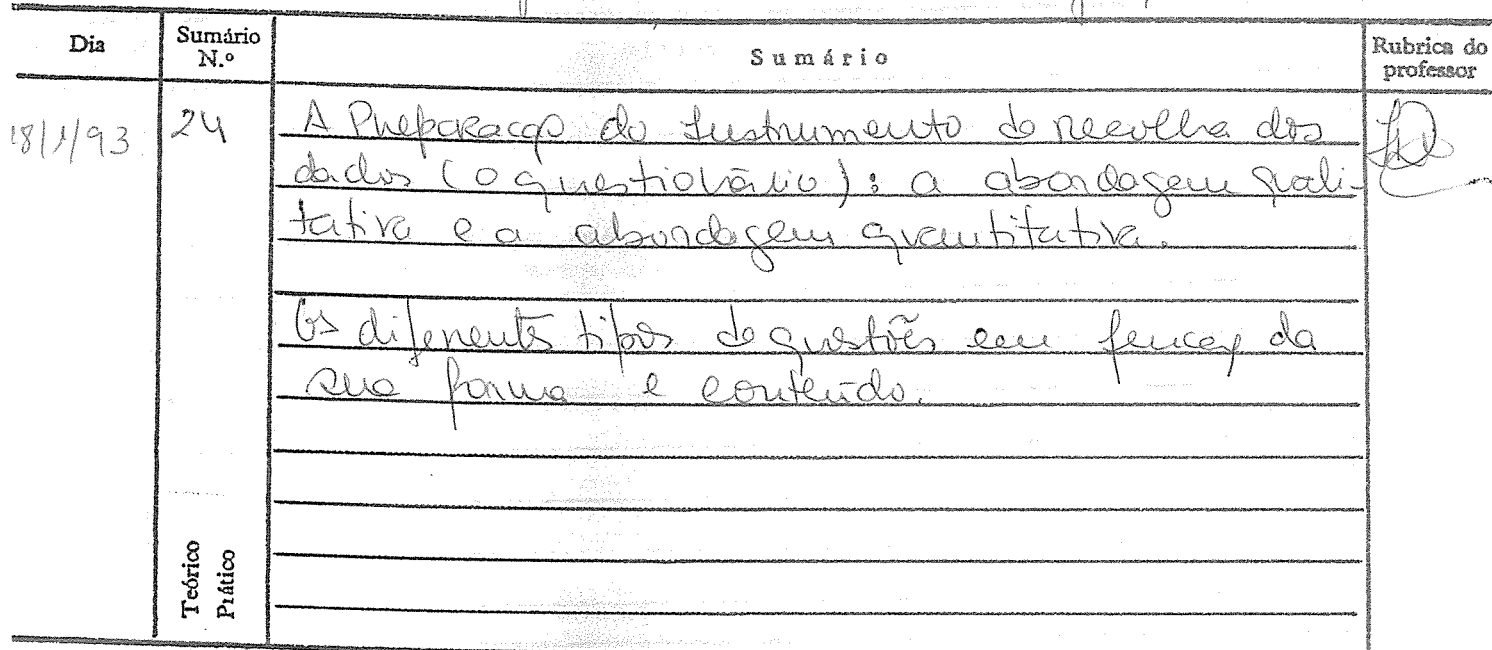 Dia
Sumário N.º
Sumário
Rubrica do professor
18/1/93
24
A Preparação do Instrumento de recolha dos
dados (o questionário): a abordagem quali-
tativa e a abordagem quantitativa.
Os diferentes tipos de questões em função da
sua forma e conteúdo.
Teórico
Prático